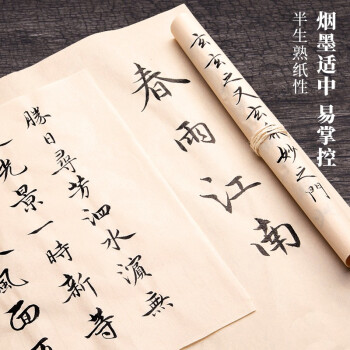 烟墨适中 易掌控
半生熟纸性
玄之又玄
妙之門
春雨江南
勝日尋芳泗水濱無
光景一時新等
風面